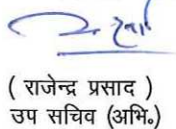 ( राजेन्द्र प्रसाद )
उप सचिव (अभि॰)